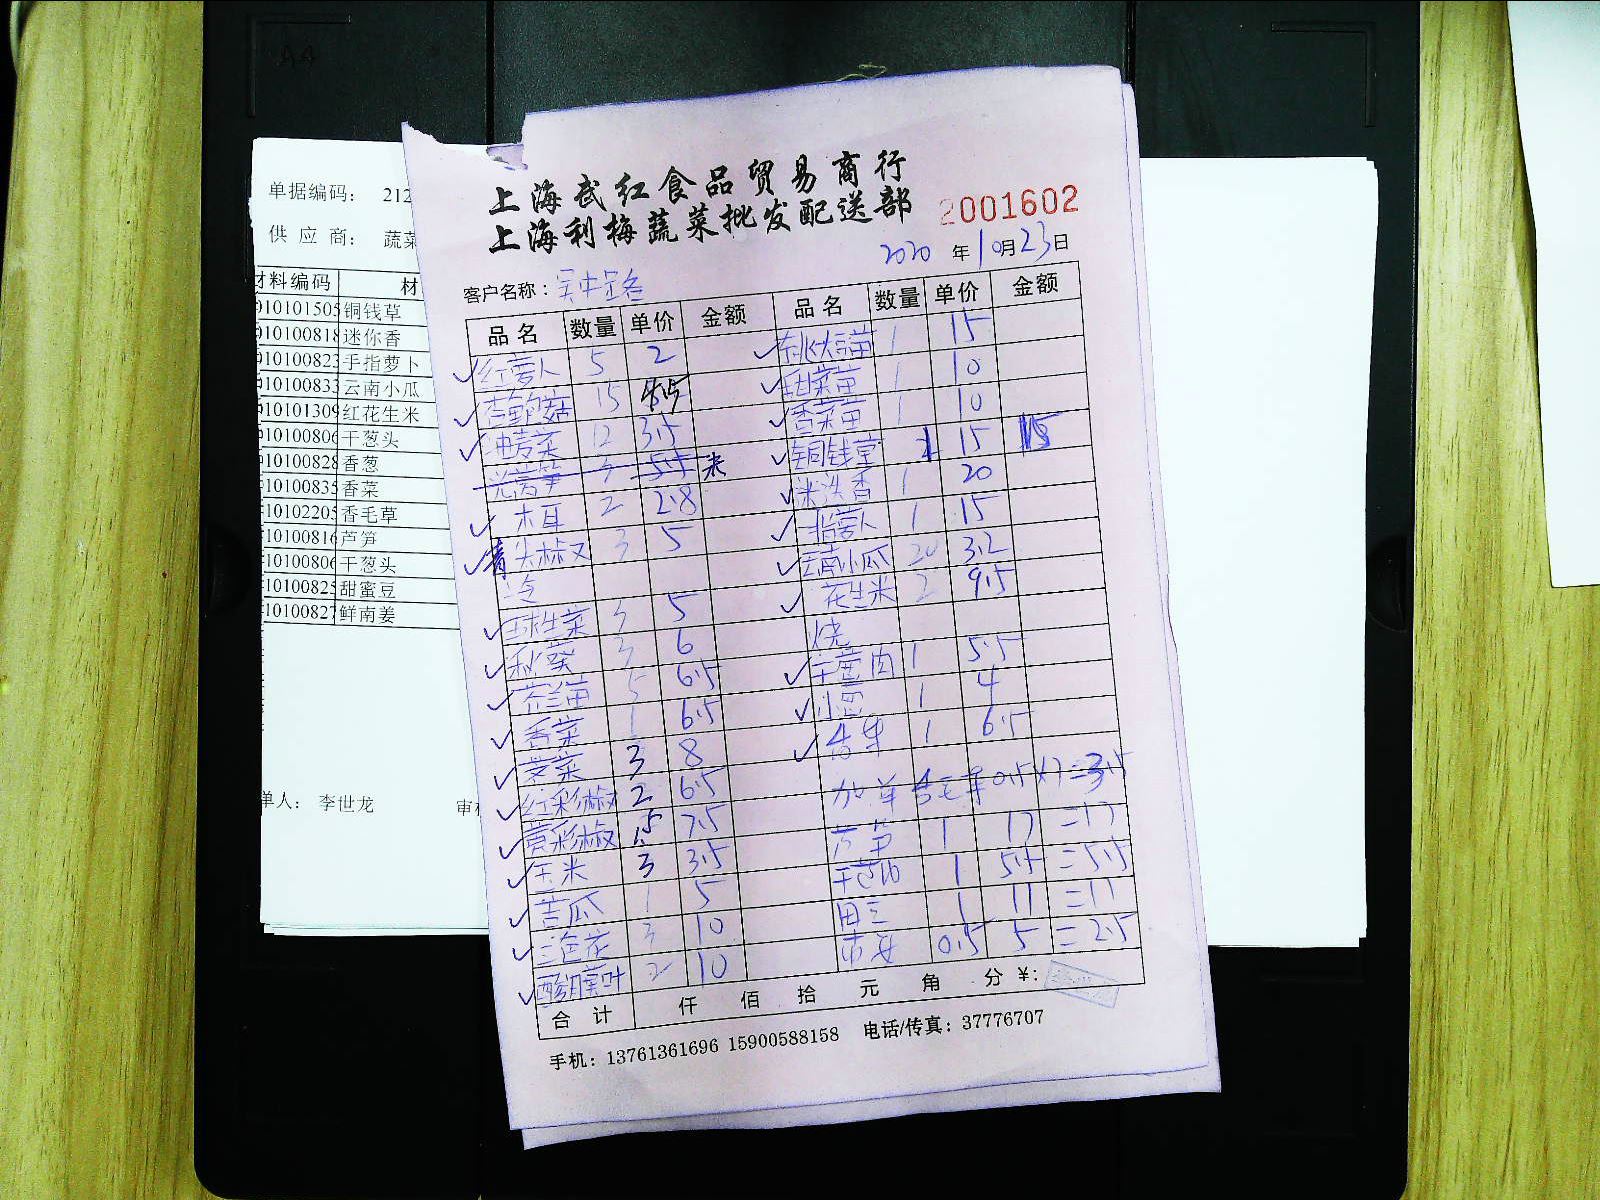 A4
单据编码： 212
供 应 商： 蔬菜
材料编码 材
010101505 铜钱草
010100818 迷你香
10100823 手指萝卜
10100833 云南小瓜
10101309 红花生米
10100806 干葱头
10100828 香葱
10100835 香菜
10102205 香毛草
10100816 芦笋
10100806 干葱头
10100825 甜蜜豆
10100827 鲜南姜
单人： 李世龙 审
上海武红食品贸易商行
上海利梅蔬菜批发配送部
2001602
2020 年 10 月 23 日
客户名称：吴中路
品名 数量 单价 金额 品名 数量 单价 金额
✓红萝卜 5 2
✓杏鲍菇 15
12 3.5
5.5
✓木耳 2 2.8
✓青尖椒 3 5
✓球生菜 3 5
✓秋葵 3 6
✓芥兰苗 5 6.5
✓香菜 1 6.5
3 8
✓红彩椒 2 6.5
✓黄彩椒 7.5
✓玉米 3 3.5
✓苦瓜 1 5
✓三色花 3 10
✓酸膜叶 2 10
1 15
✓甜菜苗 1 10
✓香菜苗 1 10
✓铜钱草 1 15 15
✓迷你香 1 20
✓指萝卜 1 15
✓云南小瓜 20 3.2
✓花生米 2 9.5
烧
1 5.5
✓小葱 1 4
1 6.5
加单 香毛草 0.5×7=3.5
芦笋 1 17 =17
干葱头 1 5.5 =5.5
1 11 =11
南姜 0.5 5 =2.5
合 计 仟 佰 拾 元 角 分 ¥:
手机：13761361696 15900588158 电话/传真：37776707